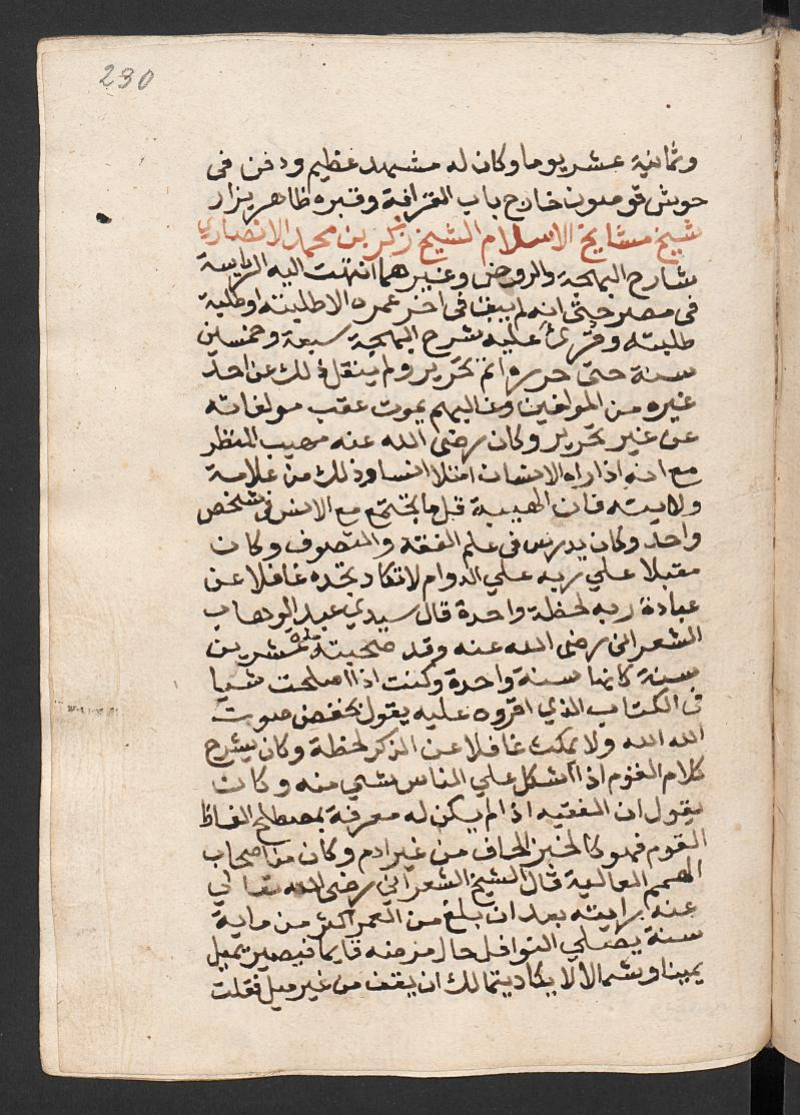 230
وثمانية عشر يوما وكان له مشهد عظيم ودفن في
حوش قومون خارج باب القرافة وقبره ظاهر يزار
شيخ مشايخ الاسلام الشيخ زكر بن محمد الانصاري
شارح البهجة والروض وغيرهما انتهت اليه الرياسة
في مصر حتى انه لم يبقا في اخر عمره الا طلبته او طلبة
طلبته وقرئ عليه شرح البهجة سبعة وخمسين
سنة حتى حررها اتم تحرير ولم ينقل ذلك عن احد
غيره من المولفين وغالبهم يموت عقب مولفاته
عن غير تحرير وكان رضى الله عنه مهيب المنظر
مع انه اذا راه الانسان امتلا انسا وذلك من علامة
ولايته فان الهيبة قل ما تجتمع مع الانس في شخص
واحد وكان يدرس في علم الفقه والتصوف وكان
مقبلا علي ربه علي الدوام لا تكاد تجده غافلا عن
عبادة ربه لحظة واحدة قال سيدي عبد الوهاب
الشعراني رضى الله عنه وقد صحبته مدة عشرين
سنة كانها سنة واحدة وكنت اذا اصلحت شيا
في الكتاب الذي اقروه عليه يقول بخفض صوت
الله الله ولا يمكث غافلا عن الذكر لحظة وكان يشرح
كلام القوم اذا اشكل علي الناس شي منه وكان
يقول ان الفقيه اذا لم يكن له معرفة بمصطلح الفاظ
القوم فهو كالخبز الحاف من غير ادم وكان من اصحاب
الهمم العالية قال الشيخ الشعراني رضى الله تعالي
عنه رايته بعد ان بلغ من العمر اكثر من ماية
سنة يصلي النوافل حال مرضه قايما فيصير يميل
يمينا وشمالا لا يكاد يتمالك ان يقف من غير ميل فقلت